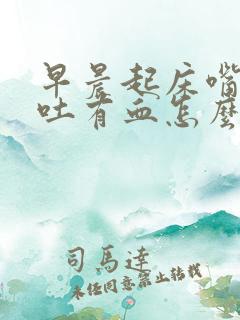 早晨起床嘴
吐有血怎麼
司馬達
未经同意禁止转载